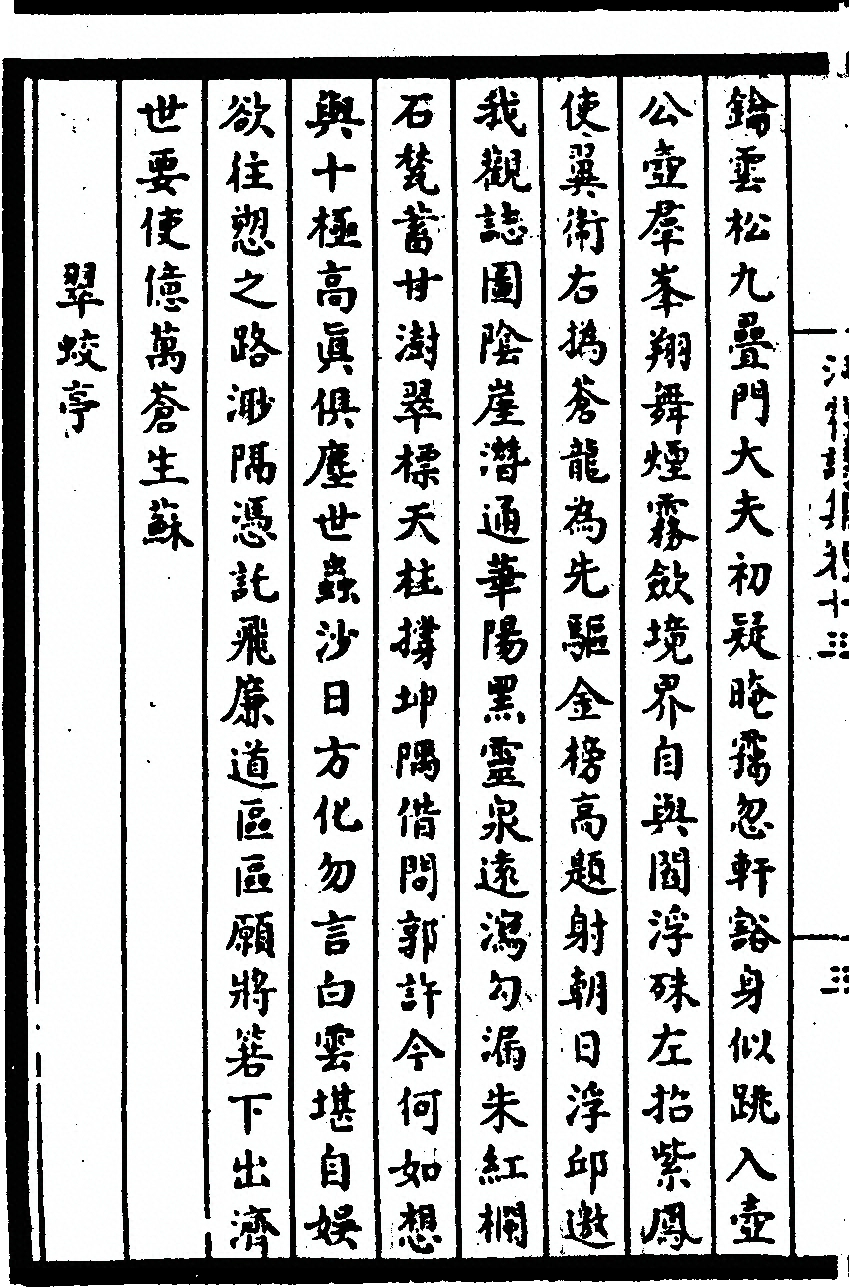 鑰雲松九疊門大夫初疑晦靄忽軒豁身似跳入壺
公壺羣峯翔舞煙霧斂境界自與閻浮殊左招紫鳳
使翼衛右撝蒼龍為先驅金榜高題射朝日浮邱邀
我觀誌圖陰崖潛通華陽黑靈泉遠瀉勾漏朱紅欄
石甃蓄甘澍翠標天柱撐坤隅借問郭許今何如想
與十極高眞俱塵世蟲沙日方化勿言白雲堪自娛
欲往愬之路渺隔憑託飛廉道區區願將箬下出濟
世要使億萬蒼生蘇
翠蛟亭